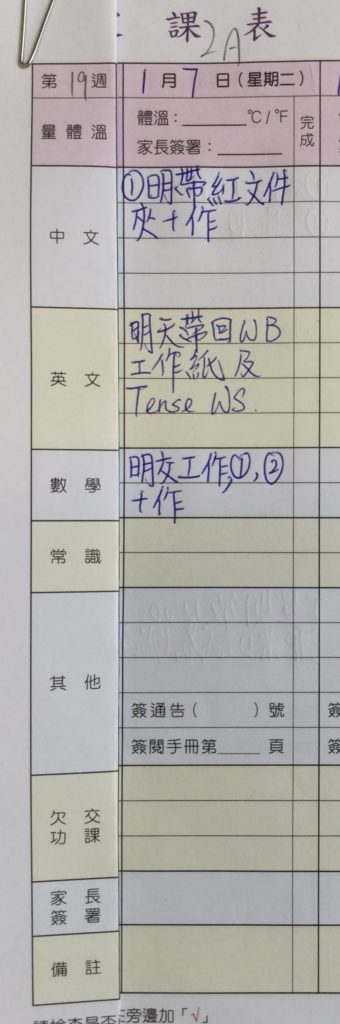 課表
2A
第19週 1月7日(星期二)
量體溫 體溫：______℃/℉ 完成
家長簽署：______
中文 ①明帶紅文件
夾+作
英文 明天帶回WB
工作紙及
Tense WS.
數學 明交工作,①,②
+作
常識
其他
簽通告( )號
簽閱手冊第____頁
欠交功課
家長簽署
備註
旁邊加「√」